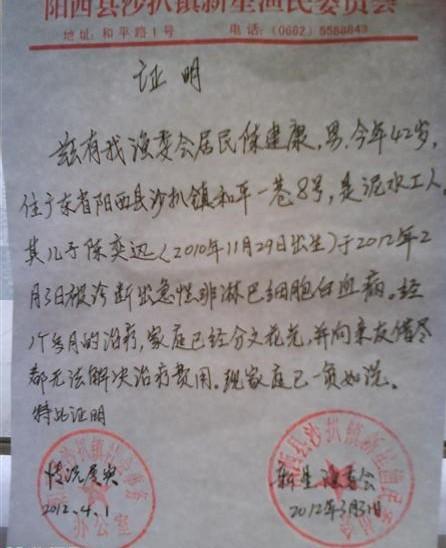 阳西县沙扒镇新星渔民委员会
地址:和平路1号 电话:(0662)5588843
证明
兹有我渔委会居民陈建康,男,今年42岁,
住广东省阳西县沙扒镇和平一巷8号,是泥水工人,
其儿子陈奕迅(2010年11月29日出生)于2012年2
月3日被诊断出急性非淋巴细胞白血病。经
1个多月的治疗,家庭已经分文花光,并向亲友借尽
都无法解决治疗费用。现家庭已一贫如洗。
特此证明
情况属实
2012.4.1
办公室
新星渔委会
2012年3月31日